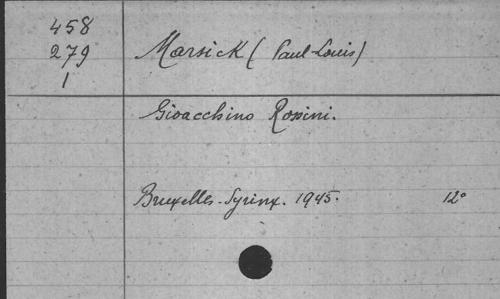 458
279 Marsick (Paul-Louis)
1
Gioacchino Rossini.
Bruxelles. Syrinx. 1945. 12°